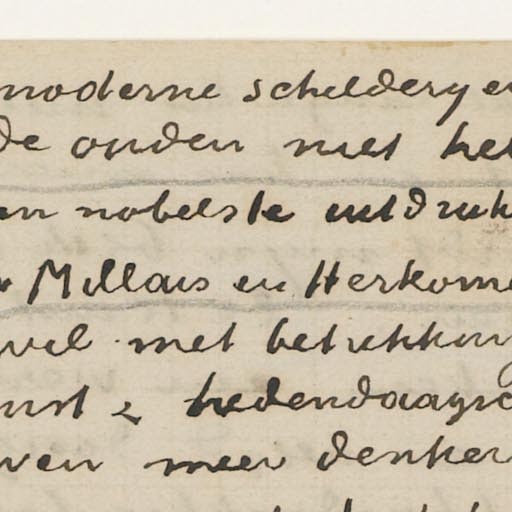 moderne schildery en
De ouden met het
en nobelste uitdruk
Millais en Herkome
wel met betrekking
unst & hedendaagsc
ven meer denken